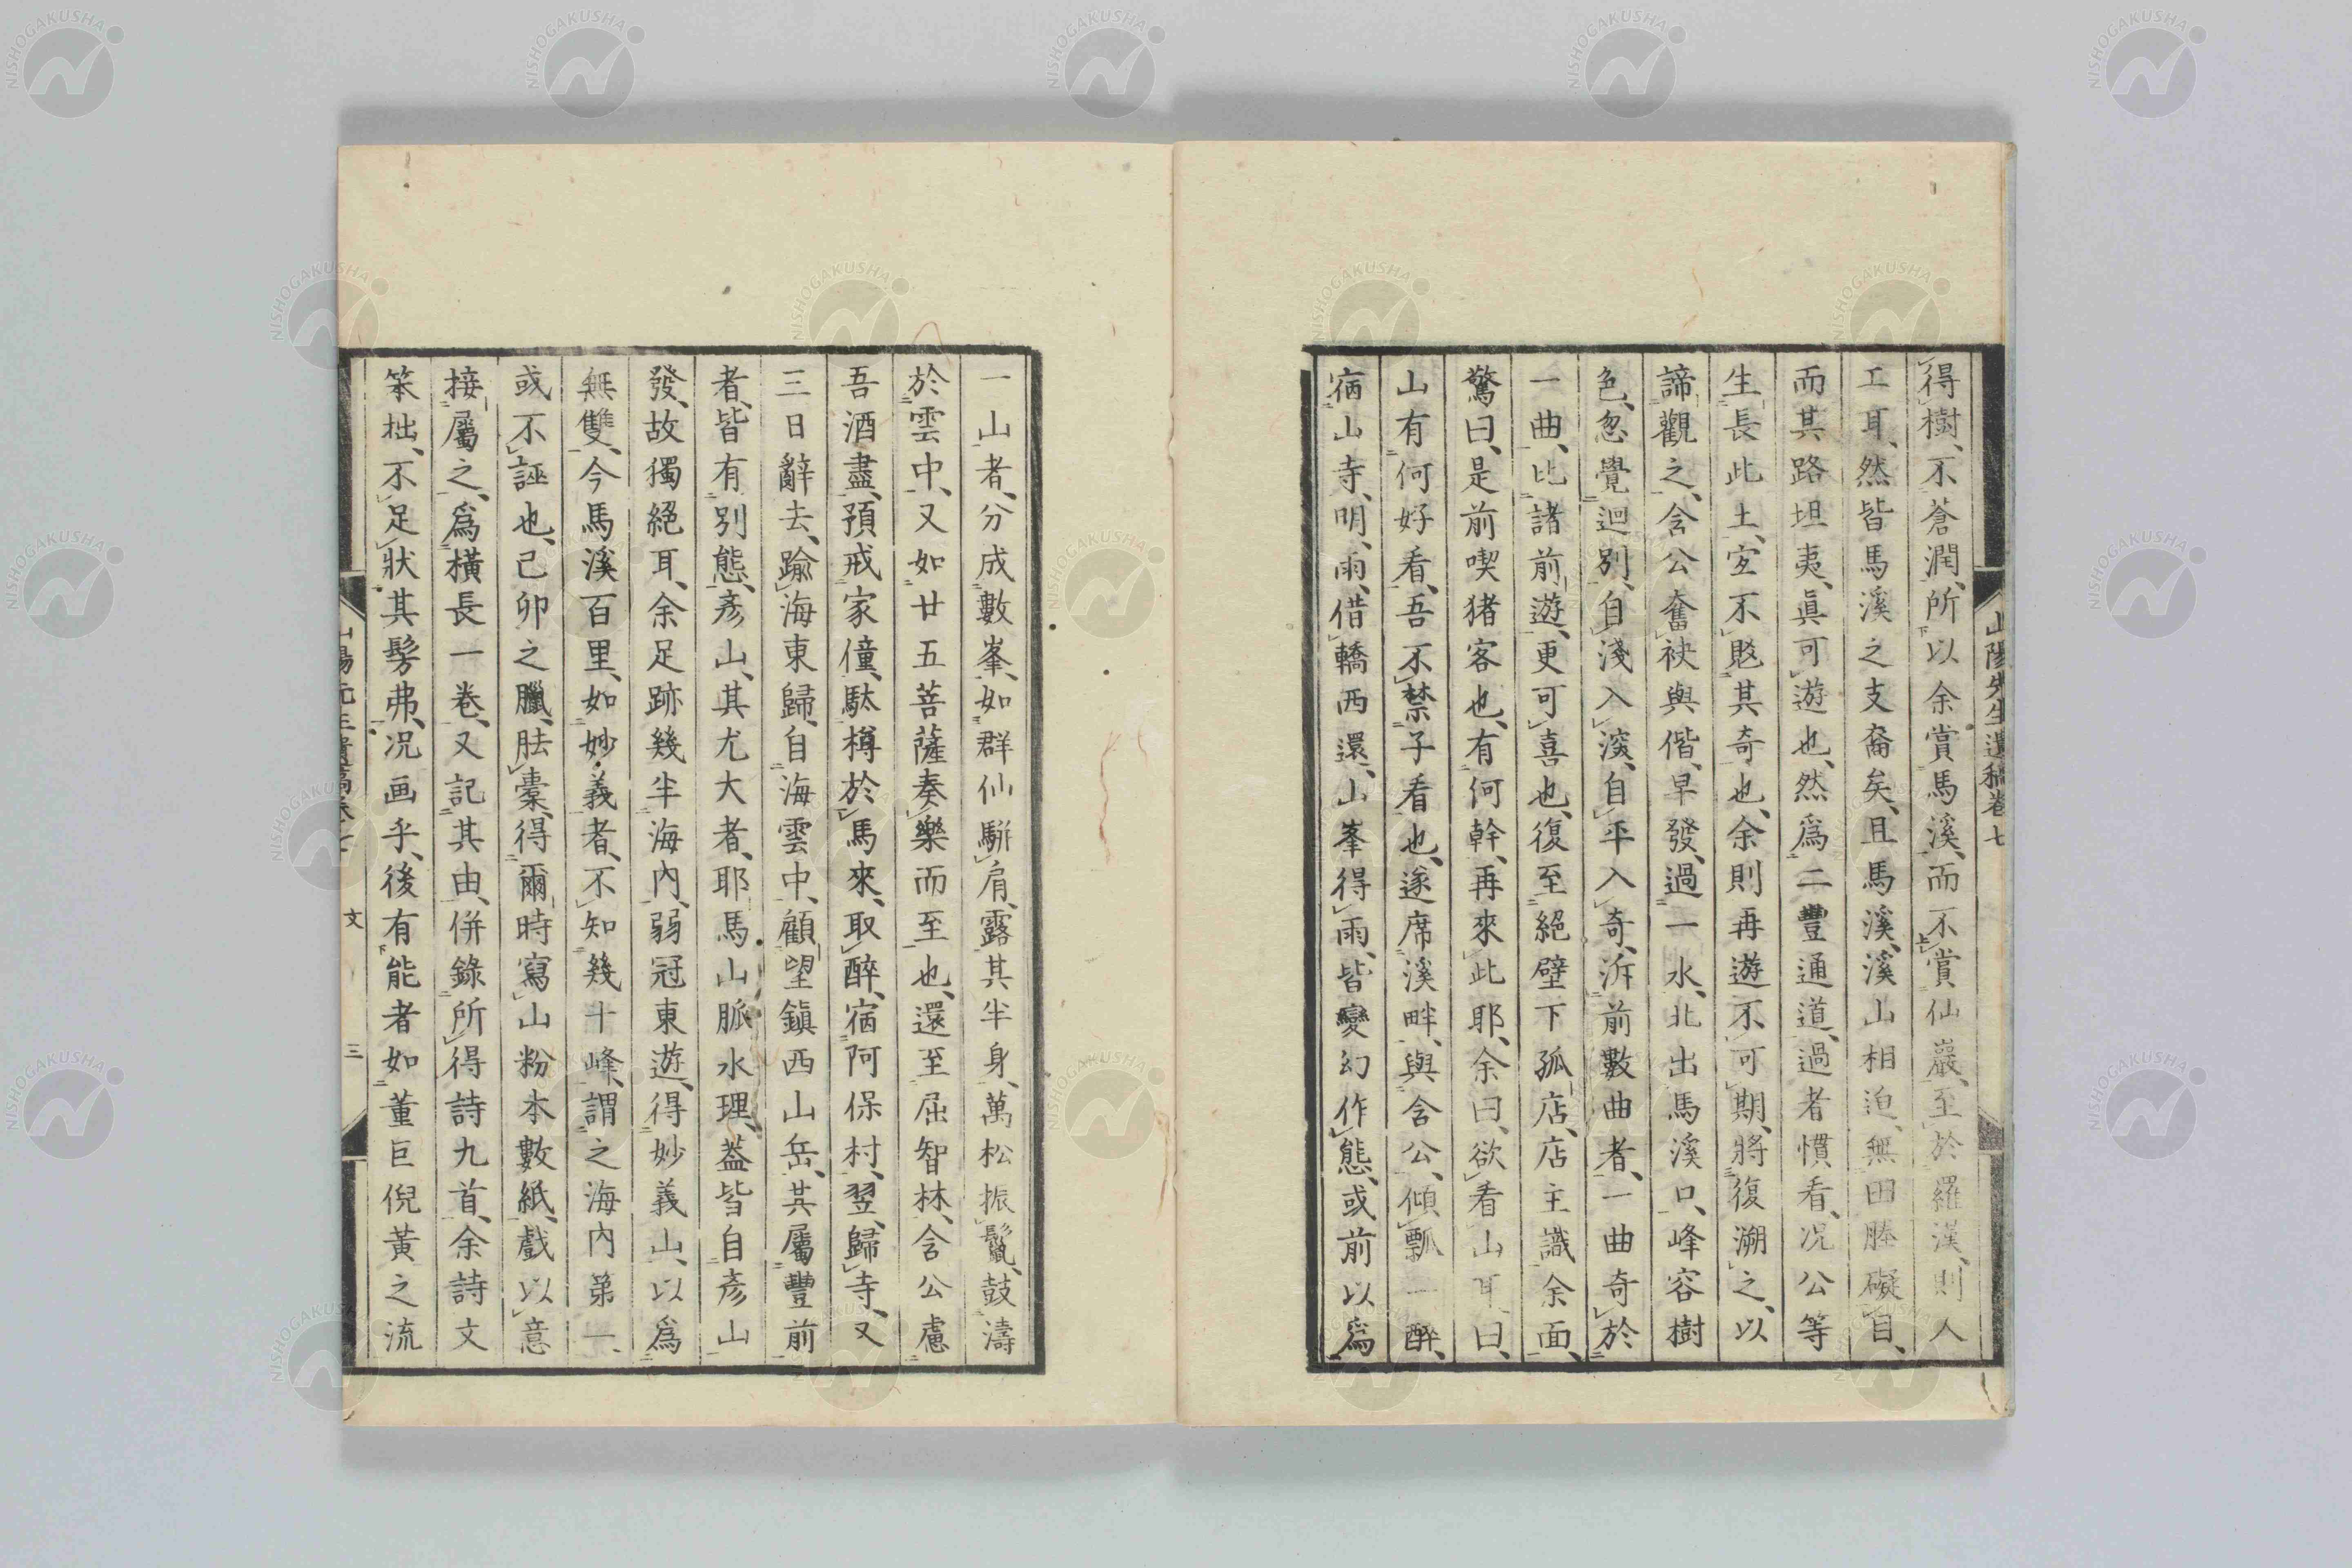 山陽先生遺稿卷七
得樹、不蒼潤、所以余賞馬溪、而不賞仙巖、至於羅漢、則人
工耳、然皆馬溪之支裔矣、且馬溪、溪山相迫、無田塍礙目、
而其路坦夷、眞可遊也、然爲二豐通道、過者慣看、況公等
生長此土、宜不駭其奇也、余則再遊不可期、將復溯之、以
諦觀之、含公奮袂與偕、早發、過一水、北出馬溪口、峰容樹
色、忽覺迥別、自淺入深、自平入奇、泝前數曲者、一曲奇於
一曲、比諸前遊、更可喜也、復至絕壁下孤店、店主識余面、
驚曰、是前喫猪客也、有何幹、再來此耶、余曰、欲看山耳、曰、
山有何好看、吾不禁子看也、遂席溪畔、與含公、傾瓢一醉、
宿山寺、明、雨、借轎西還、山峯得雨、皆變幻作態、或前以爲
一山者、分成數峯、如群仙駢肩、露其半身、萬松振鬣、鼓濤
於雲中、又如廿五菩薩奏樂而至也、還至屈智林、含公慮
吾酒盡、預戒家僮、馱樽於馬來、取醉、宿阿保村、翌、歸寺、又
三日辭去、踰海東歸、自海雲中、顧望鎭西山岳、其屬豐前
者、皆有別態、彥山、其尤大者、耶馬山脈水理、葢皆自彥山
發、故獨絕耳、余足跡幾半海內、弱冠東遊、得妙義山、以爲
無雙、今馬溪百里、如妙義者、不知幾十峰、謂之海內第一、
或不誣也、己卯之臘、胠橐、得爾時寫山粉本數紙、戲以意
接屬之、爲橫長一卷、又記其由、併錄所得詩九首、余詩文
笨拙、不足狀其髣弗、況画乎、後有能者如董巨倪黃之流
文
三
NISHOGAKUSHA